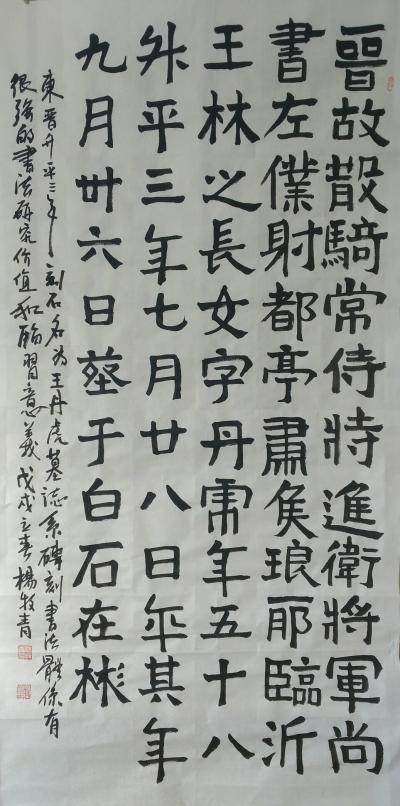 晉故散騎常侍特進衛將軍尚
書左僕射都亭肅侯琅耶臨沂
王彬之長女字丹虎年五十八
升平三年七月廿八日卒其年
九月卅六日塟于白石在彬
東晉升平三年刻石名为王丹虎墓誌系碑刻書法體係有
很強的書法研究价值和臨習意義戊戌立春楊牧青